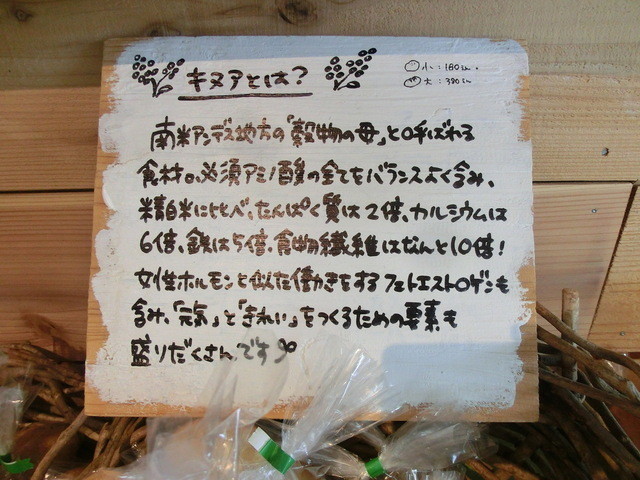 キヌアとは？
小：180えん。
大：380えん
南米アンデス地方の「穀物の母」と呼ばれる
食材。必須アミノ酸の全てをバランスよく含み、
精白米に比べ、たんぱく質は2倍、カルシウムは
6倍、鉄は5倍、食物繊維はなんと10倍！
女性ホルモンと似た働きをするフェトエストロゲンも
含み、「元気」と「きれい」をつくるための要素も
盛りだくさんです